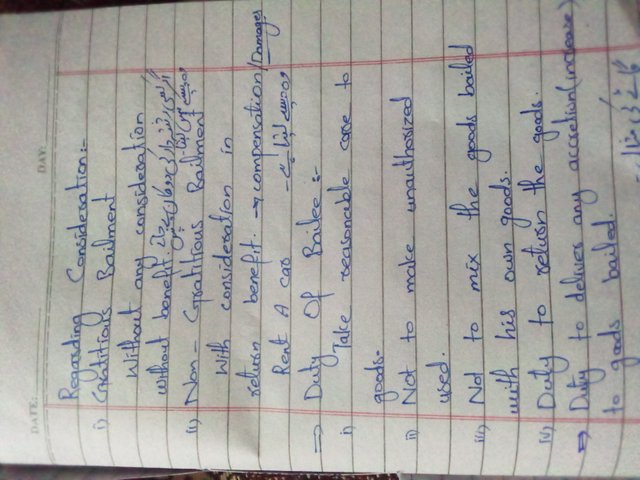 DATE: DAY:
Regarding Consideration:-
i) Gratitious Bailment
Without any consideration
Without benefit.
ii) Non - Gratitious Bailment
With consideration in
return benefit. → compensation/Damages
Rent A car
⇒ Duty Of Bailee :-
i) Take reasonable care to
goods.
ii) Not to make unauthorized
used.
iii) Not to mix the goods bailed
with his own goods.
iv) Duty to return the goods.
⇒ Duty to deliver any accretion (increase)
to goods bailed.